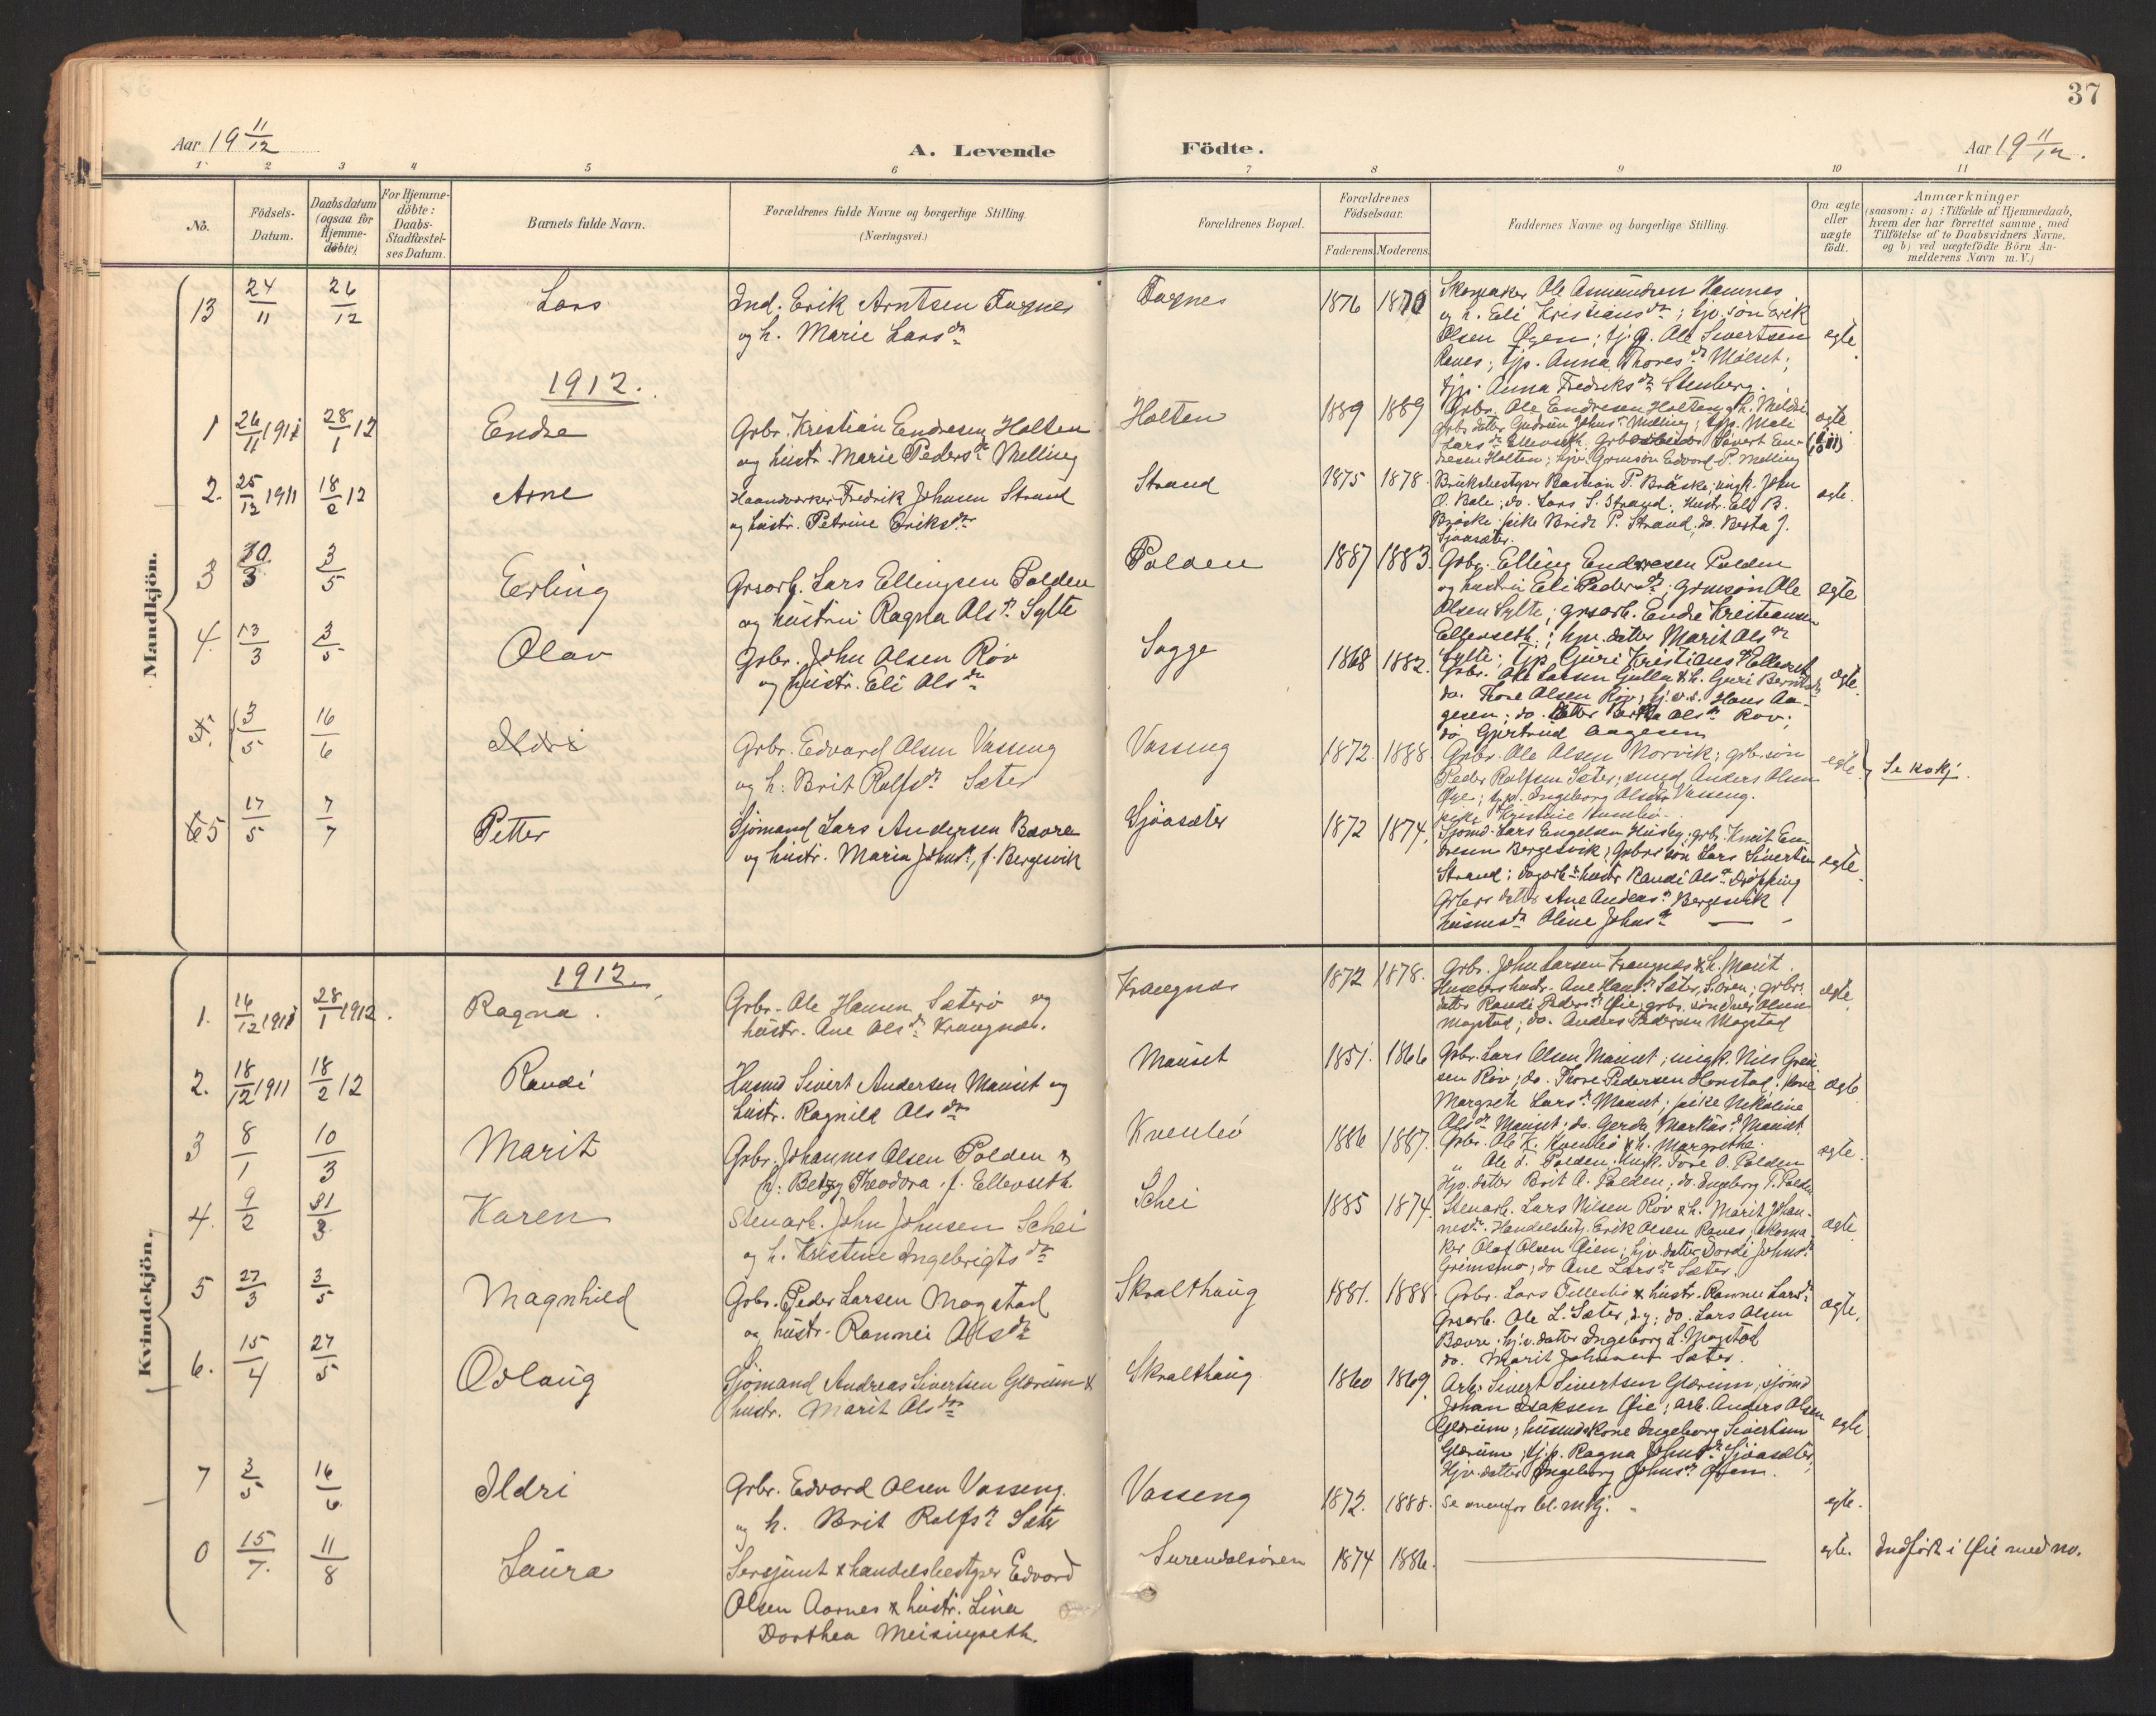 37
Aar 19 11/12
A. Levende
Födte.
Aar 19 11/12.
1 2 3 4 5 6 7 8 9 10 11
No.
Födsels-
Datum.
Daabsdatum
(ogsaa for
Hjemme-
döbte).
For Hjemme-
döbte:
Daabs-
Stadfæstel-
ses Datum.
Barnets fulde Navn.
Forældrenes fulde Navne og borgerlige Stilling.
(Næringsvei.)
Forældrenes Bopæl.
Forældrenes
Födselsaar.
Faderens. Moderens.
Faddernes Navne og borgerlige Stilling.
Om ægte
eller
uægte
födt.
Anmærkninger
(saasom: a) i Tilfælde af Hjemmedaab,
hvem der har forrettet samme, med
Tilföielse af to Daabsvidners Navne,
og b) ved uægtefödte Börn An-
melderens Navn m.V.)
Mandkjön.
13 24/11 26/12 Lars
Ind. Erik Arntsen Fagnes
og h. Marie Larsdr
Fagnes 1876 1870
Skomaker Ole Amundsen Hamnes
og h. Eli Kristiansdr; hjv. søn Erik
Olsen Øyen; tj.g. Ole Sivertsen
Ranes; tjp. Anna Thoresdr Mølset;
tjp. Anna Fredriksdr Stenberg.
egte.
1912.
1 26/11 1911 28/1 12 Endre
Grbr. Kristian Endresen Holten
og hustr. Marie Pedersdr Melling
Holten 1889 1889
Grbr. Ole Endresen Holten & h. Mildri
grbr. datter Gudrun Johnsdr Melling; tjp. Mali
Larsdr Ellevseth. Sivert En-
dresen Holten; hjv. Edvard P. Melling
egte
2. 25/12 1911 18/2 12 Arne
Haandverker Fredrik Johnsen Strand
og hustr. Petrine Eriksdr
Strand 1875 1878.
Brukbestyrer Bastian P. Bræske; ungk. John
O. Bale; do. Lars S. Strand; hustr. Eli B.
Bræske; pike Brit P. Strand, do. Berta J.
Sjøasæter.
egte.
3 30/3 3/5 Erling
Grsarb. Lars Ellingsen Polden
og hustru Ragna Olsdr Sylte
Polden 1887 1883.
Grbr. Elling Endresen Polden
og hustru Eli Pedersdr; grmsøn Ole
Olsen Sylte; grsarb. Endre Kristiansen
Ellevseth; datter Marit Olsdr
Sylte; tjp. Guri Kristiansdr Ellevset
egte
4. 13/3 3/5 Olav
Grbr. John Olsen Røv
og hustr. Eli Olsdr
Sogge 1868 1882.
Grbr. Ole Larsen Gulla & h. Guri
do. Thore Olsen Røv; Hans Aa-
gesen; do. datter Berta Olsdr Røv;
do Gjertrud Aagesen
egte.
3/5 16/6 Ildri
Grbr. Edvard Olsen Vasseng
og h. Brit Rolfsdr Sæter
Vasseng 1872. 1888.
Grbr. Ole Olsen Norvik; grbr. søn
Peder Rolfsen Sæter; Anders Olsen
Øye; tjp. Ingeborg Olsdtr Vasseng.
pike Kristine
egte.
Se kvkj.
5 17/5 7/7 Petter
Sjömand Lars Andersen Bævre
og hustr. Maria Johnsdr, f. Bergesvik
Sjöasæter 1872 1874.
Sjömd. Lars Engelsen Husby; grbr. Knut En-
dresen Bergesvik; Grbrs søn Lars Sivertsen
Strand; dagarb. hustr. Randi Olsdr Dröpping
Grbers datter Ane Andersdr Bergesvik
husmdr Oline Johnsdr —
egte.
Kvindekjön.
1912.
1. 16/12 1911 28/1 1912. Ragna.
Grbr. Ole Hansen Sæterö og
hustr. Ane Olsdr Krangnæs.
Krangnæs 1872 1878.
Grbr. John Larsen Krangnæs & h. Marit.
Ane Hansdr Sæter, Søren; grbr.
datter Randi Pedersdr Øie; grbr. søn Olsen
Mogstad; do. Anders Pedersen Mogstad
egte.
2. 18/12 1911 18/2 12 Randi
Husmd Sivert Andersen Mauset og
hustr. Ragnild Olsdr
Mauset 1851. 1866
Grbr. Lars Olsen Mauset; ungk. Nils
Røv; do. Thore Pedersen Honstad; kone
Margrete Larsdr Mauset; pike Nikoline
Olsdr Mauset; do. Gerda Markusdr Mauset.
egte
3 8/1 10/3 Marit
Grbr. Johannes Olsen Polden &
h. Betzy Theodora f. Ellevseth
Kvenbö 1886 1887.
Grbr. Ole K. Kvenbö & h. Margrethe.
„ Ole J. Polden. Ungk. Tore O. Polden
Hjv. datter Brit A. Polden; do. Ingeborg T. Polden
egte.
4. 9/2 31/3 Karen
Stenarb. John Johnsen Schei
og h. Kristine Ingebrigtsdr
Schei 1885 1874.
Stenarb. Lars Nilsen Röv & h. Marit Johan-
nesdr. Handelsbetj. Erik Olsen Ranes; skoma-
ker Olaf Olsen Øien; hjv. datter Dordi Johnsdr
Grimsmo; do Ane Larsdr Sæter.
egte.
5 27/3 3/5 Magnhild
Grbr. Peder Larsen Mogstad
og hustr. Rannei Olsdr
Skralthaug 1881. 1888.
Grbr. Lars Tellesbö & hustr. Rannei Larsdr
Grsarb. Ole L. Sæter, d.y; do. Lars Olsen
Bævre; hj.v. datter Ingeborg L. Mogstad
do. Marit Johansen Sæter.
egte.
6. 15/4 27/5 Oslaug
Sjömand Andreas Sivertsen Glærum &
hustr. Marit Olsdr
Skralthaug. 1860 1869.
Arb. Sivert Sivertsen Glærum; sjömd
Johan Isaksen Øie; arb. Anders Olsen
Glærum; husmdskone Ingeborg Sivertsen
Glærum; tj.p. Ragna Johnsdr Sjöasæter
Hjv. datter Ingeborg Johnsdr
egte.
7 3/5 16/6 Ildri
Grbr. Edvard Olsen Vasseng.
og h. Brit Rolfsdr Sæter
Vasseng 1872. 1888.
Se ovenfor bl. mkj. „
egte.
0 15/7. 11/8 Laura
Sersjant & handelsbestyrer Edvard
Olsen Aarnes & hustr. Lina
Dorthea Meisingseth.
Surendalsören 1874 1886. —
egte. Indført i Øie med no.